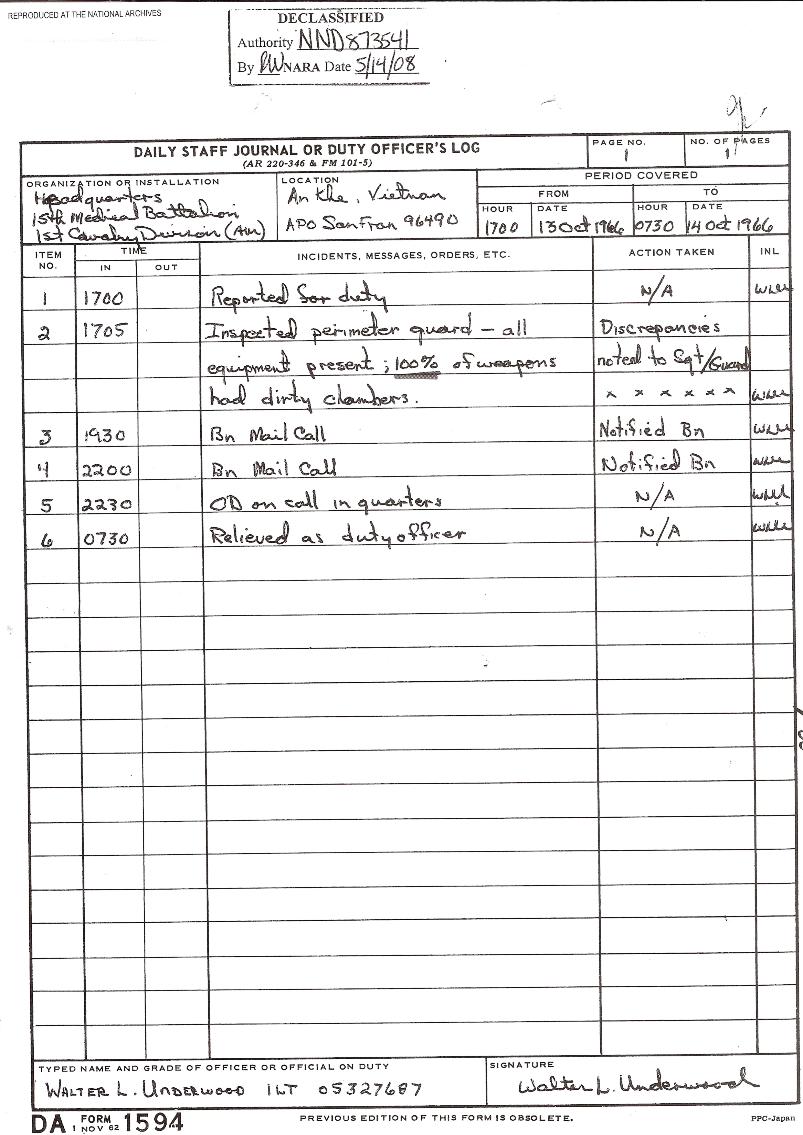 REPRODUCED AT THE NATIONAL ARCHIVES
DECLASSIFIED
Authority NND873541
By NARA Date 5/14/08
DAILY STAFF JOURNAL OR DUTY OFFICER'S LOG
(AR 220-346 & FM 101-5)
PAGE NO.
1
NO. OF PAGES
1
ORGANIZATION OR INSTALLATION
Headquarters
15th Medical Battalion
1st Cavalry Division (AM)
LOCATION
An Khe, Vietnam
APO San Fran 96490
PERIOD COVERED
FROM TO
HOUR DATE HOUR DATE
1700 13 Oct 1966 0730 14 Oct 1966
ITEM NO. TIME IN OUT INCIDENTS, MESSAGES, ORDERS, ETC. ACTION TAKEN INL
1 1700 Reported for duty N/A WLU
2 1705 Inspected perimeter guard – all Discrepancies
equipment present; 100% of weapons noted to Sgt/Guard
had dirty chambers. x x x x x x WLU
3 1930 Bn Mail Call Notified Bn WLU
4 2200 Bn Mail Call Notified Bn WLU
5 2230 OD on call in quarters N/A WLU
6 0730 Relieved as duty officer N/A WLU
TYPED NAME AND GRADE OF OFFICER OR OFFICIAL ON DUTY
WALTER L. UNDERWOOD 1LT 05327687
SIGNATURE
Walter L. Underwood
DA FORM 1 NOV 62 1594
PREVIOUS EDITION OF THIS FORM IS OBSOLETE.
PPC-Japan